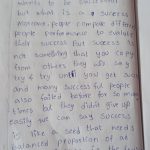 wants to be successful
but what is a success
Moreover, people compare differ
people performance to evaluate
their success but success is
not something that you copy
from others they will say
try & try until you get succ
and many successful people
also failed before for so many
times but they didn't give up
easily we can say success
is like a seed that needs
balanced proportion of